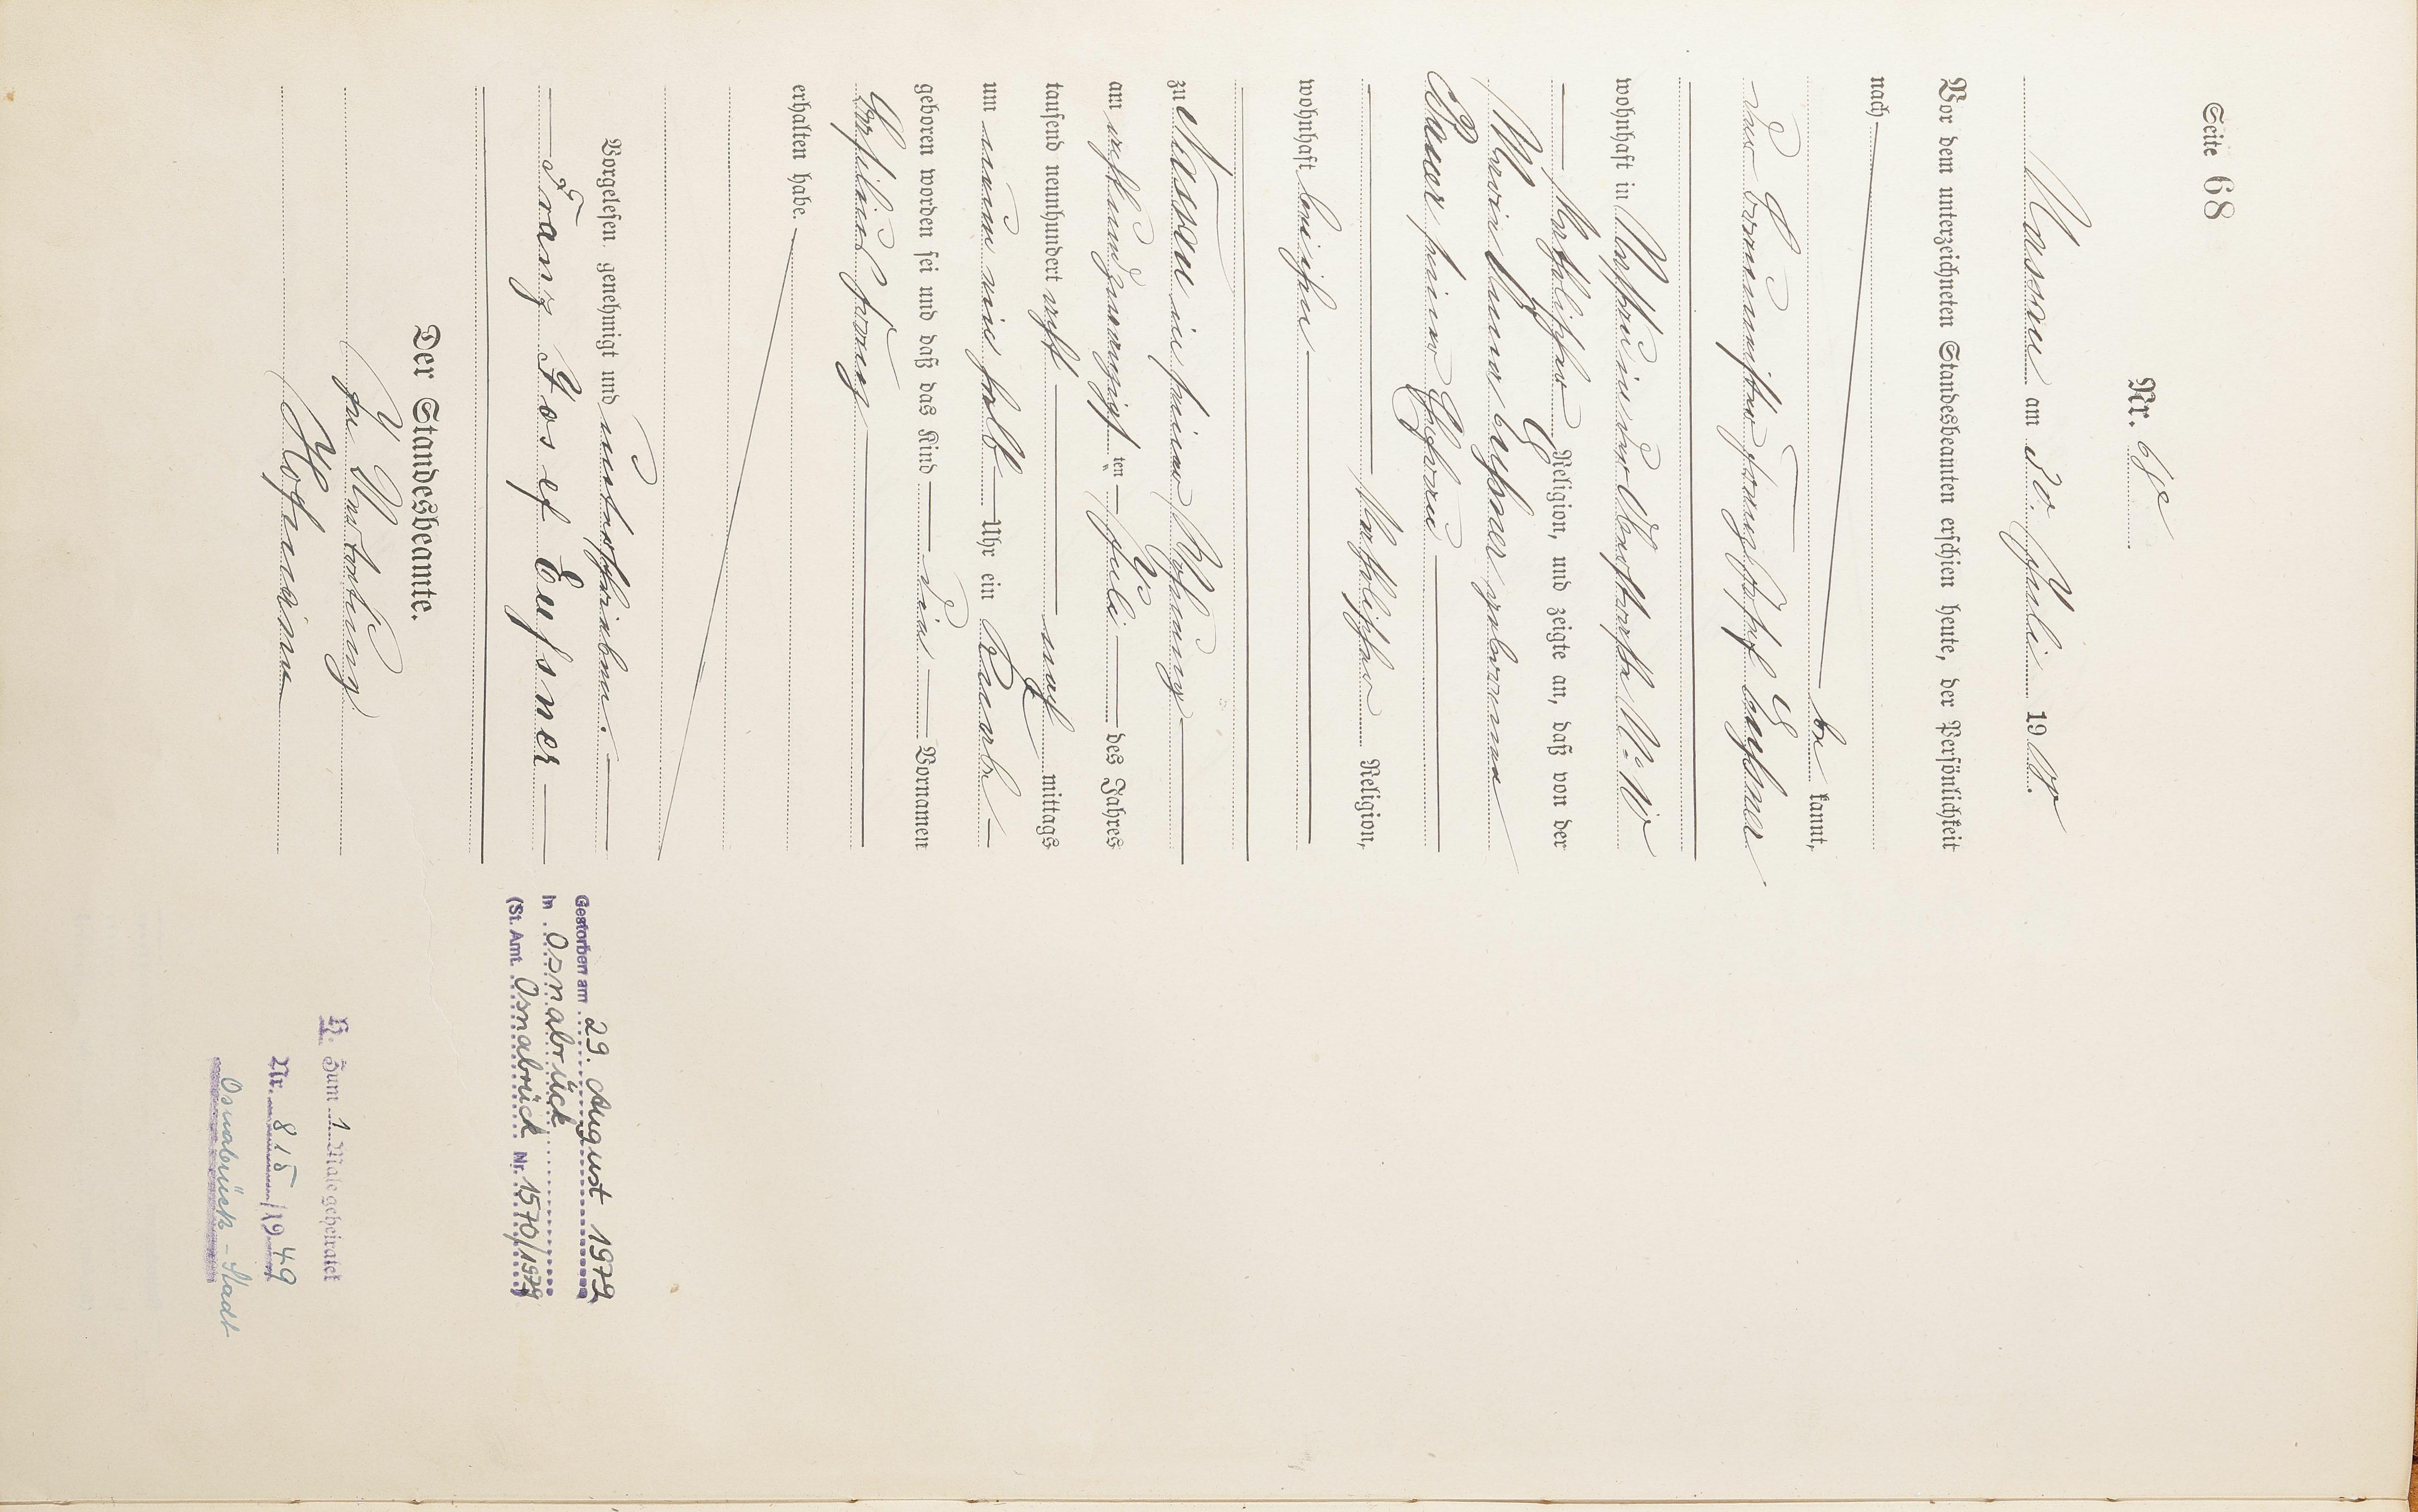 Seite 68
Nr. 68
Nassau am 30. Juli 1908.
Vor dem unterzeichneten Standesbeamten erschien heute, der Persönlichkeit
nach
be kannt,
der Franz Joseph Eußner
wohnhaft in Nassau in der
katholischer Religion, und zeigte an, daß von der
Maria Anna Eußner geborenen
Bauer seiner Ehefrau
katholischer Religion,
wohnhaft bei ihm
zu Nassau in seiner Wohnung
am achtundzwanzigsten Juli des Jahres
tausend neunhundert acht nach mittags
um neun ein halb Uhr ein Knabe
geboren worden sei und daß das Kind die Vornamen
Franz
erhalten habe.
Vorgelesen, genehmigt und unterschrieben.
Franz Josef Eufsner
Der Standesbeamte.
In Vertretung
Hofmann
Gestorben am 29. August 1979
in Osnabrück
(St. Amt. Osnabrück Nr. 1570/1979)
H. Zum 1 Male geheiratet
Nr. 815/1949
Osnabrück-Stadt